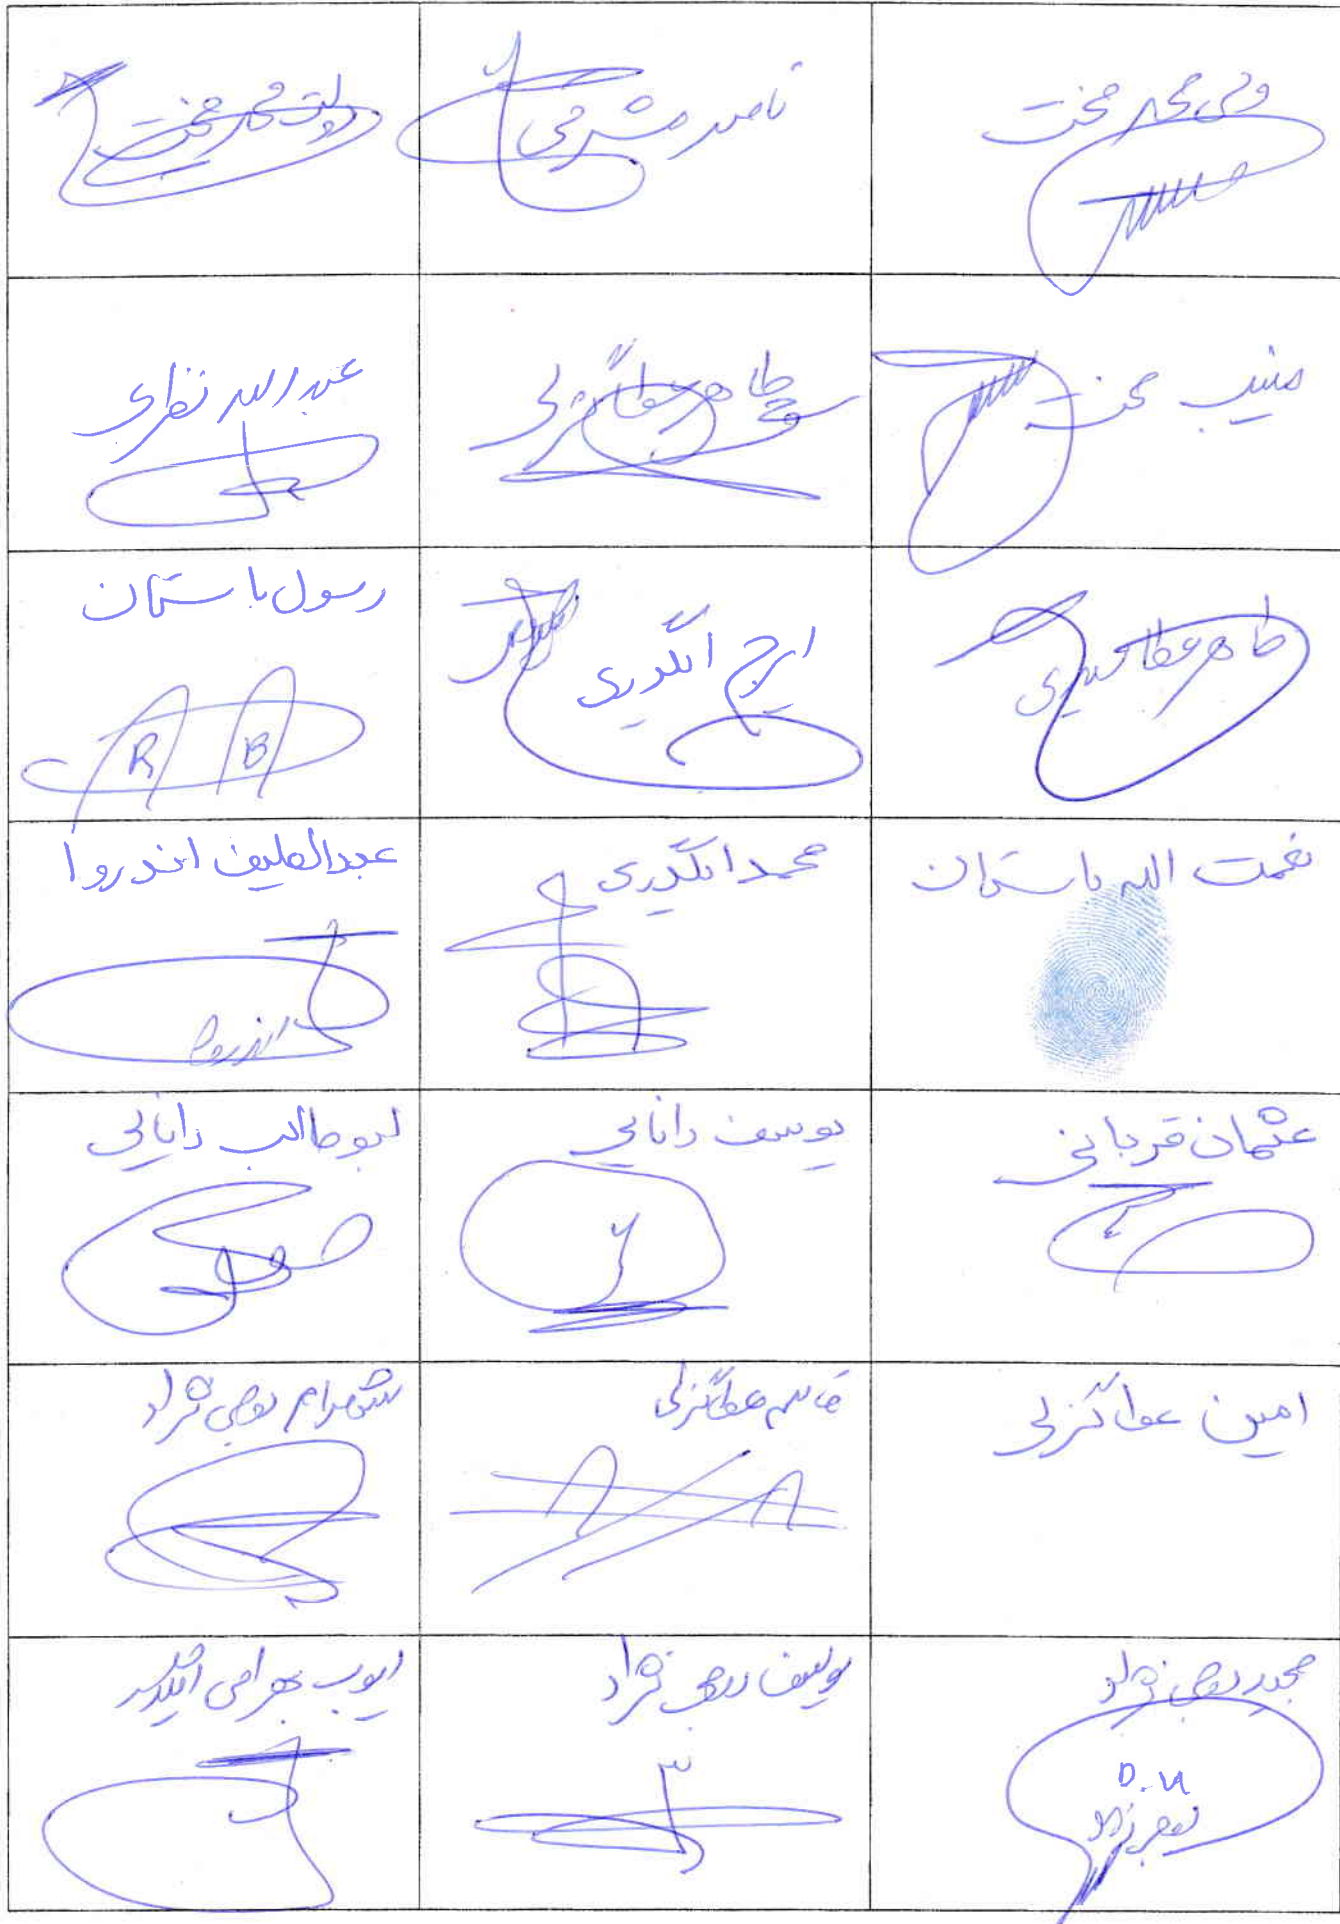 ولی محمد محنت
ناصر مشرفی
دولت محمد محنت
منیب محنت
طاهر عطاگزلی
عبدالله نظری
طاهر عطا
ایرج انگدری
رسول باستان
R B
نعمت الله باستان
محمد انگدری
عبدالطیف اندروا
عثمان قربانی
یوسف دانایی
ابوطالب دانایی
امین عطاگزلی
قاسم عطاگزلی
شهرام رجبی نژاد
مجید رجبی نژاد
یوسف رجبی نژاد
ایوب بهرامی